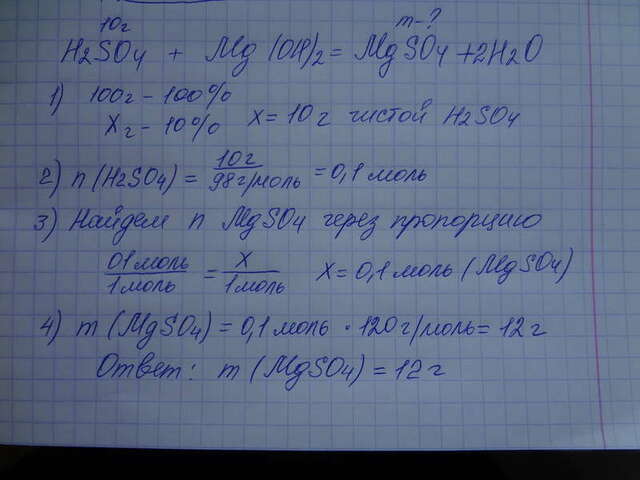 10г m-?
H2SO4 + Mg(OH)2 = MgSO4 + 2H2O
1) 100г - 100%
Xг - 10% X = 10г чистой H2SO4
2) n(H2SO4) = 10г / 98г/моль = 0,1 моль
3) Найдем n MgSO4 через пропорцию
01 моль / 1 моль = X / 1 моль X = 0,1 моль (MgSO4)
4) m(MgSO4) = 0,1 моль · 120г/моль = 12г
Ответ: m(MgSO4) = 12г